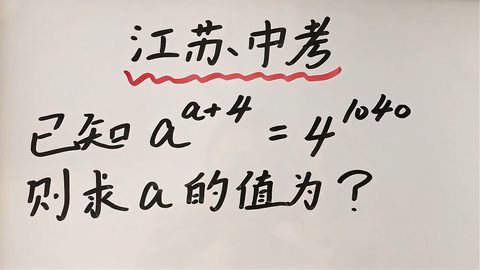 江苏、中考
已知 a^{a+4} = 4^{1040}
则求 a 的值为？